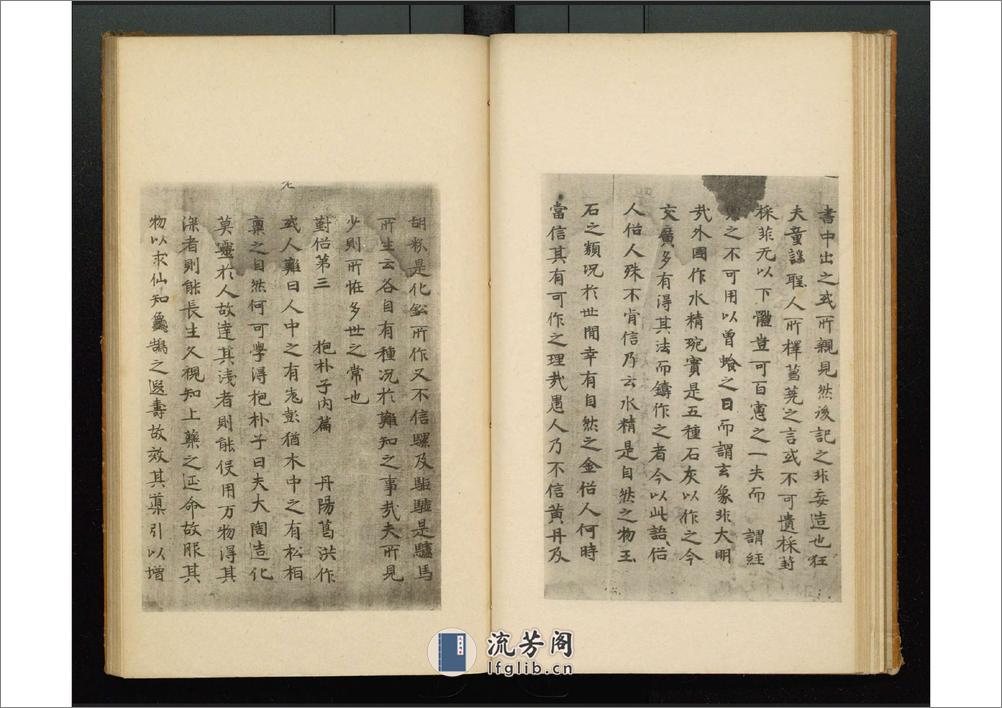 書中出之或所親見然後記之非妄造也狂
夫童謠聖人所擇蒭蕘之言或不可遺採葑
採菲无以下體豈可百慮之一失而　謂經
之不可用以曽蝕之日而謂玄象非大明
㢤外國作水精琬實是五種石灰以作之今
交廣多有得其法而鑄作之者今以此語俗
人俗人殊不肯信乃云水精是自然之物玉
石之類况於世閒幸有自然之金俗人何時
當信其有可作之理㢤愚人乃不信黄丹及
胡粉是化鈆所作又不信騾及駏驉是驢馬
所生云各自有種况於難知之事㢤夫所見
少則所恠多世之常也
對俗第三　抱朴子内篇　丹陽葛洪作
或人難曰人中之有老彭猶木中之有松栢
禀之自然何可學得抱朴子曰夫大陶造化
莫靈於人故達其淺者則能役用万物得其
深者則能長生久視知上藥之延命故服其
物以求仙知龜鵠之遐壽故效其導引以增
流芳阁
lfglib.cn